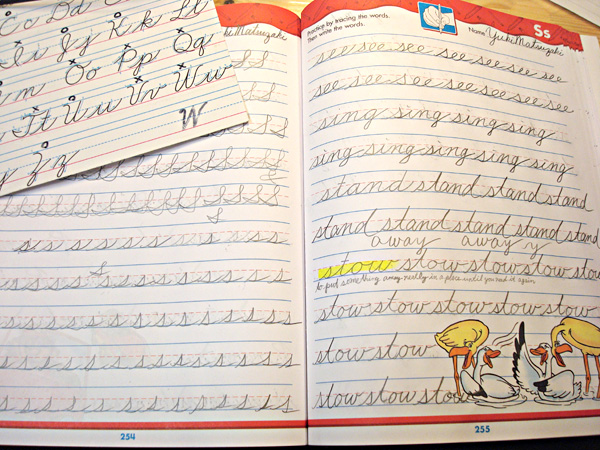 Cc Dd
Ii Jj Kk Ll
m Oo Pp Qq
Tt Uu Vv Ww
W
y Zz
ki Matsuzaki
S S
s s s s s s s s s s s
s
s s s s s s s s s s s
s s s s s s s s s s s
s s s s s s s s s s s
s s s s s s s s s s s
254
Practice by tracing the words.
Then write the words.
Name Yuki Matsuzaki
Ss
see see see see see see
see see see see see see
sing sing sing sing
sing sing sing sing sing
stand stand stand stand
stand stand stand stand
away away y
stow stow stow stow stow
to put something away neatly in a place until you need it again
stow stow stow stow stow
stow stow
stow stow stow
255